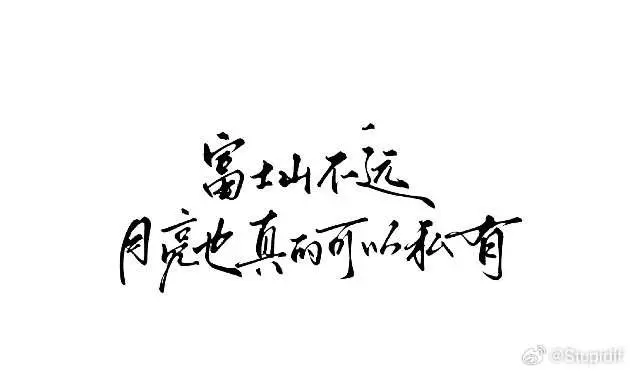 富士山不远
月亮也真的可以私有
@Stupidif